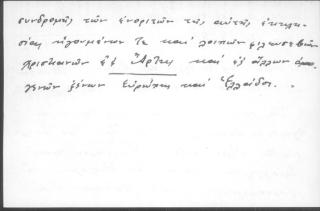 συνδρομῆς τῶν ἐνοριτῶν τῆς αὐτῆς ἐκκλη-
σίας ἡγουμένων τε καὶ λοιπῶν φιλευσεβῶν
χριστιανῶν ἐξ Ἄρτης καὶ ἐξ ἄλλων ὁμο-
γενῶν ξένων Εὐρώπης καὶ Ἑλλάδος.